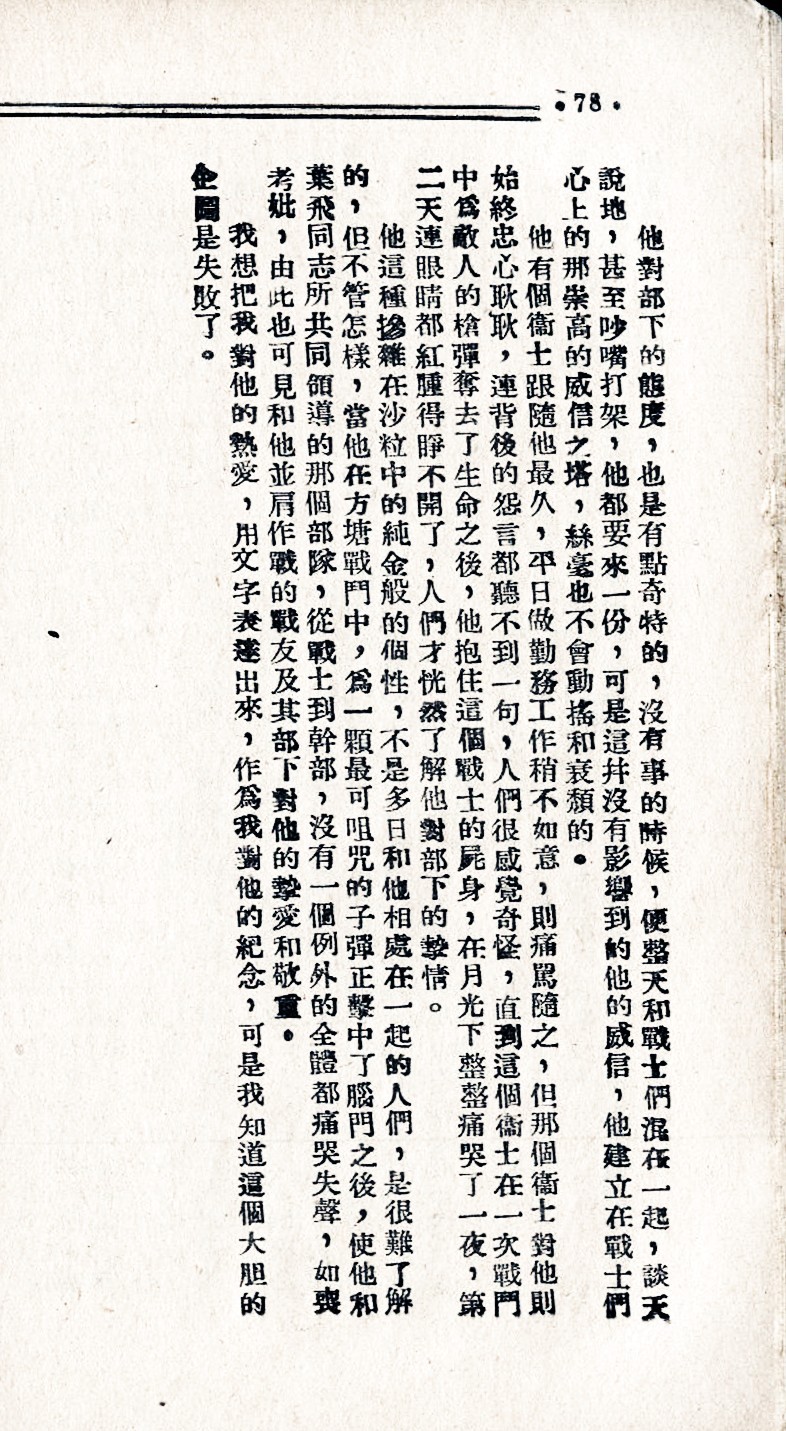 •78•
他對部下的態度，也是有點奇特的，沒有事的時候，便整天和戰士們混在一起，談天
說地，甚至吵嘴打架，他都要來一份，可是這幷沒有影響到的他的威信，他建立在戰士們
心上的那崇高的威信之塔，絲毫也不會動搖和衰頹的。
他有個衞士跟隨他最久，平日做勤務工作稍不如意，則痛駡隨之，但那個衞士對他則
始終忠心耿耿，連背後的怨言都聽不到一句，人們很感覺奇怪，直到這個衞士在一次戰鬥
中爲敵人的槍彈奪去了生命之後，他抱住這個戰士的屍身，在月光下整整痛哭了一夜，第
二天連眼睛都紅腫得睜不開了，人們才恍然了解他對部下的摯情。
他這種摻雜在沙粒中的純金般的個性，不是多日和他相處在一起的人們，是很難了解
的，但不管怎樣，當他在方塘戰鬥中，爲一顆最可咀咒的子彈正擊中了腦門之後，使他和
葉飛同志所共同領導的那個部隊，從戰士到幹部，沒有一個例外的全體都痛哭失聲，如喪
考妣，由此也可見和他並肩作戰的戰友及其部下對他的摯愛和敬重。
我想把我對他的熱愛，用文字表達出來，作爲我對他的紀念，可是我知道這個大胆的
企圖是失敗了。